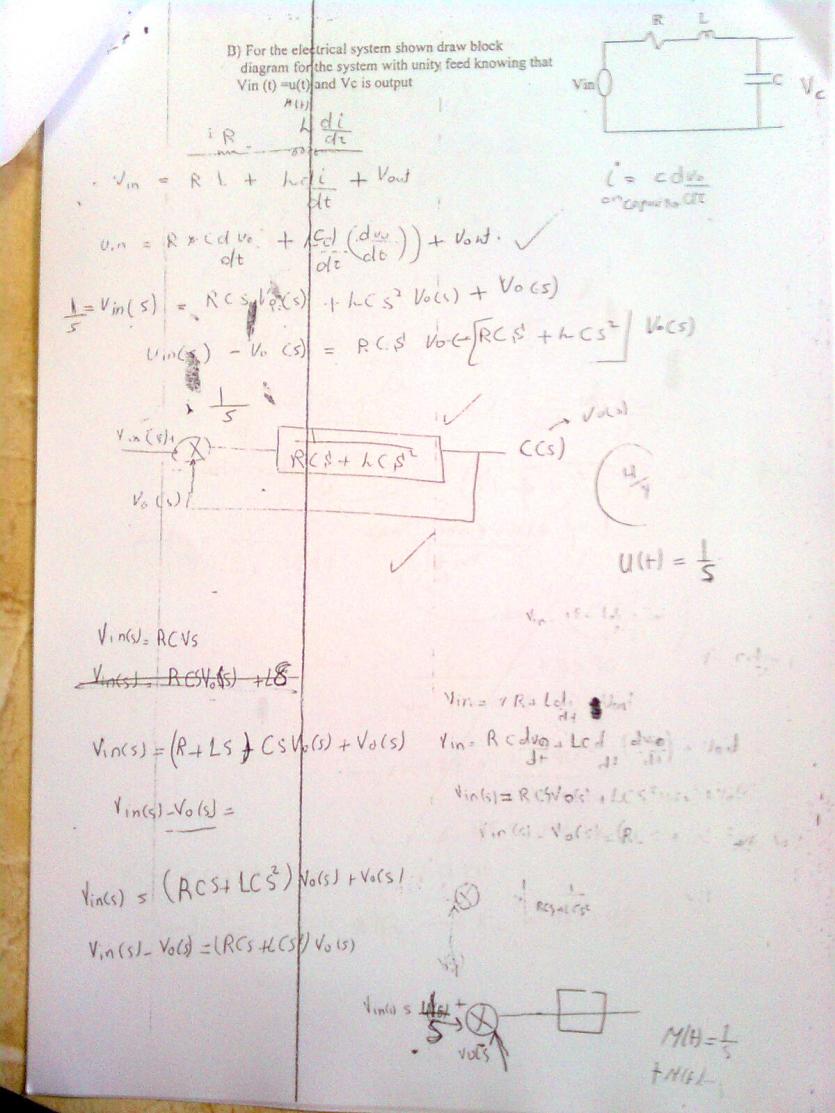 B) For the electrical system shown draw block
diagram for the system with unity feed knowing that
Vin (t) =u(t) and Vc is output
R L
Vin
C
Vc
M(t)
iR L di/dt
Vin = R i + L di/dt + Vout
i = c dvo/dt
on capacitor
Vin = R * c dvo/dt + L cd/dt (dvo/dt)) + Vout ✓
1/S = Vin(s) = RCS Vo(s) + LCS² Vo(s) + Vo(s)
Vin(s) - Vo(s) = RCS Vo [RCS + LCS²] Vo(s)
1/S
Vin(s) +
1
RCS + LCS²
C(s) → Vo(s)
Vo(s)
4/4
U(t) = 1/S
Vin(s) = RCVs
Vin(s) = RCSVo(s) + LS
Vin = R + L di/dt
Vin(s) = (R + LS) CSVo(s) + Vo(s)
Vin = R c dvo/dt + Lcd/dt (dvo/dt)
Vin(s) - Vo(s) =
Vin(s) = RCSVo(s) + LCS²
Vin(s) - Vo(s) = (R
Vin(s) = (RCS + LCS²) Vo(s) + Vo(s)
1/RCS+LCS²
Vin(s) - Vo(s) = (RCS + LCS²) Vo(s)
Vin(s) = 1/S +
Vo(s)
M(t) = 1/S